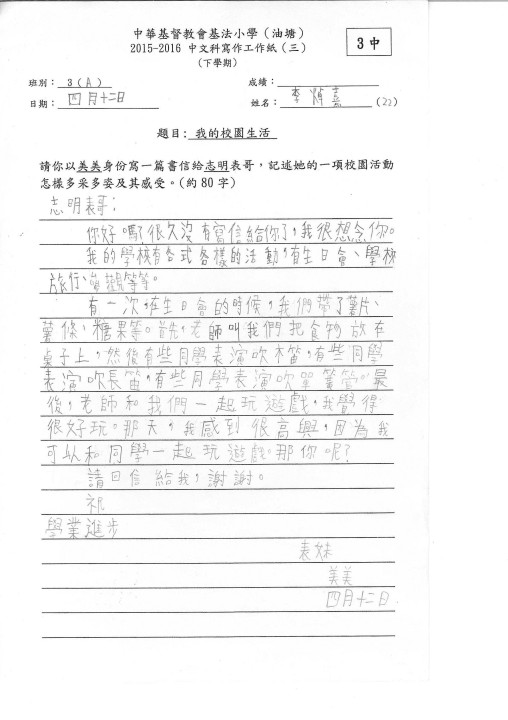 中華基督教會基法小學（油塘）
2015-2016 中文科寫作工作紙（三）
（下學期）
3中
班別： 3(A)
成績：
日期： 四月十二日
姓名： 李 嘉 (22)
題目：我的校園生活
請你以美美身份寫一篇書信給志明表哥，記述她的一項校園活動
怎樣多采多姿及其感受。（約 80 字）
志明表哥：
你好嗎？很久沒有寫信給你了，我很想念你。
我的學校有各式各樣的活動，有生日會、學校
旅行、參觀等等。
有一次，在生日會的時候，我們帶了薯片、
薯條、糖果等。首先，老師叫我們把食物放在
桌子上，然後有些同學表演吹木笛，有些同學
表演吹長笛，有些同學表演吹單簧管。最
後，老師和我們一起玩遊戲，我覺得
很好玩。那天，我感到很高興，因為我
可以和同學一起玩遊戲。那你呢？
請回信給我，謝謝。
祝
學業進步
表妹
美美
四月十二日